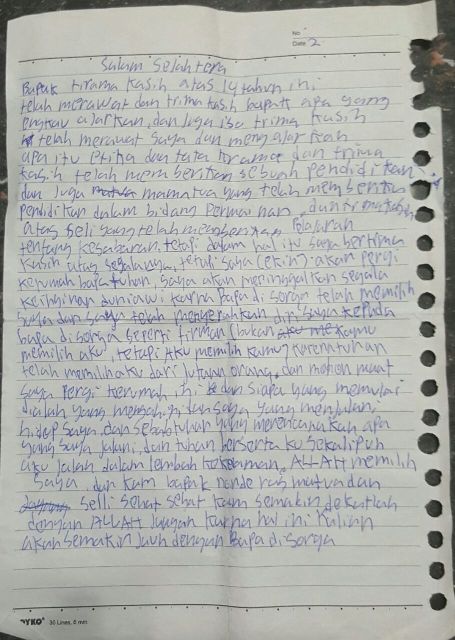 No
Date 2
Salam Selahtera
Bapak trirama Kasih atas 14 tahun ini
telah merawat dan trima kasih bapak apa yang
engkau ajarkan, dan Juga isa trima Kasih
telah merawat saya dan mengajarkan
apa itu etika dan tata krama dan trima
kasih telah memberikan sebuah pendidikan
dan Juga mamatua yang telah memberikan
pendidikan dalam bidang Permainan, dan trimakasih
atas Seli yang telah memberikan Pelajaran
tentang kesabaran, tetapi dalam hal itu saya bertrima
Kasih atas segalanya, tetapi saya (ekin) akan pergi
kerumah bapa tuhan, saya akan meninggalkan segala
keinginan duniawi karna Bapa di sorga telah memilih
Saya dan saya telah menyerahkan diri saya kepada
bapa di sorga seperti firman (bukan kamu
memilih aku, tetapi Aku memilih kamu) karena tuhan
telah memilih aku dari Jutaan orang, dan mohon maaf
saya Pergi kerumah ini dan siapa yang memulai
dialah yang mengakhiri dan saya yang menjalani
hidup saya, dan sebab tuhan yang merencanakan apa
yang saya jalani, dan tuhan berserta ku sekalipun
aku jalan dalam lembah kekelaman, ALLAH memilih
Saya, dan kam bapak nande ras matua dan
selli sehat sehat kam semakin dekatlah
dengan ALLAH Jangan karna hal ini kalian
akan semakin Jauh dengan Bapa di sorga
30 Lines, 6 mm